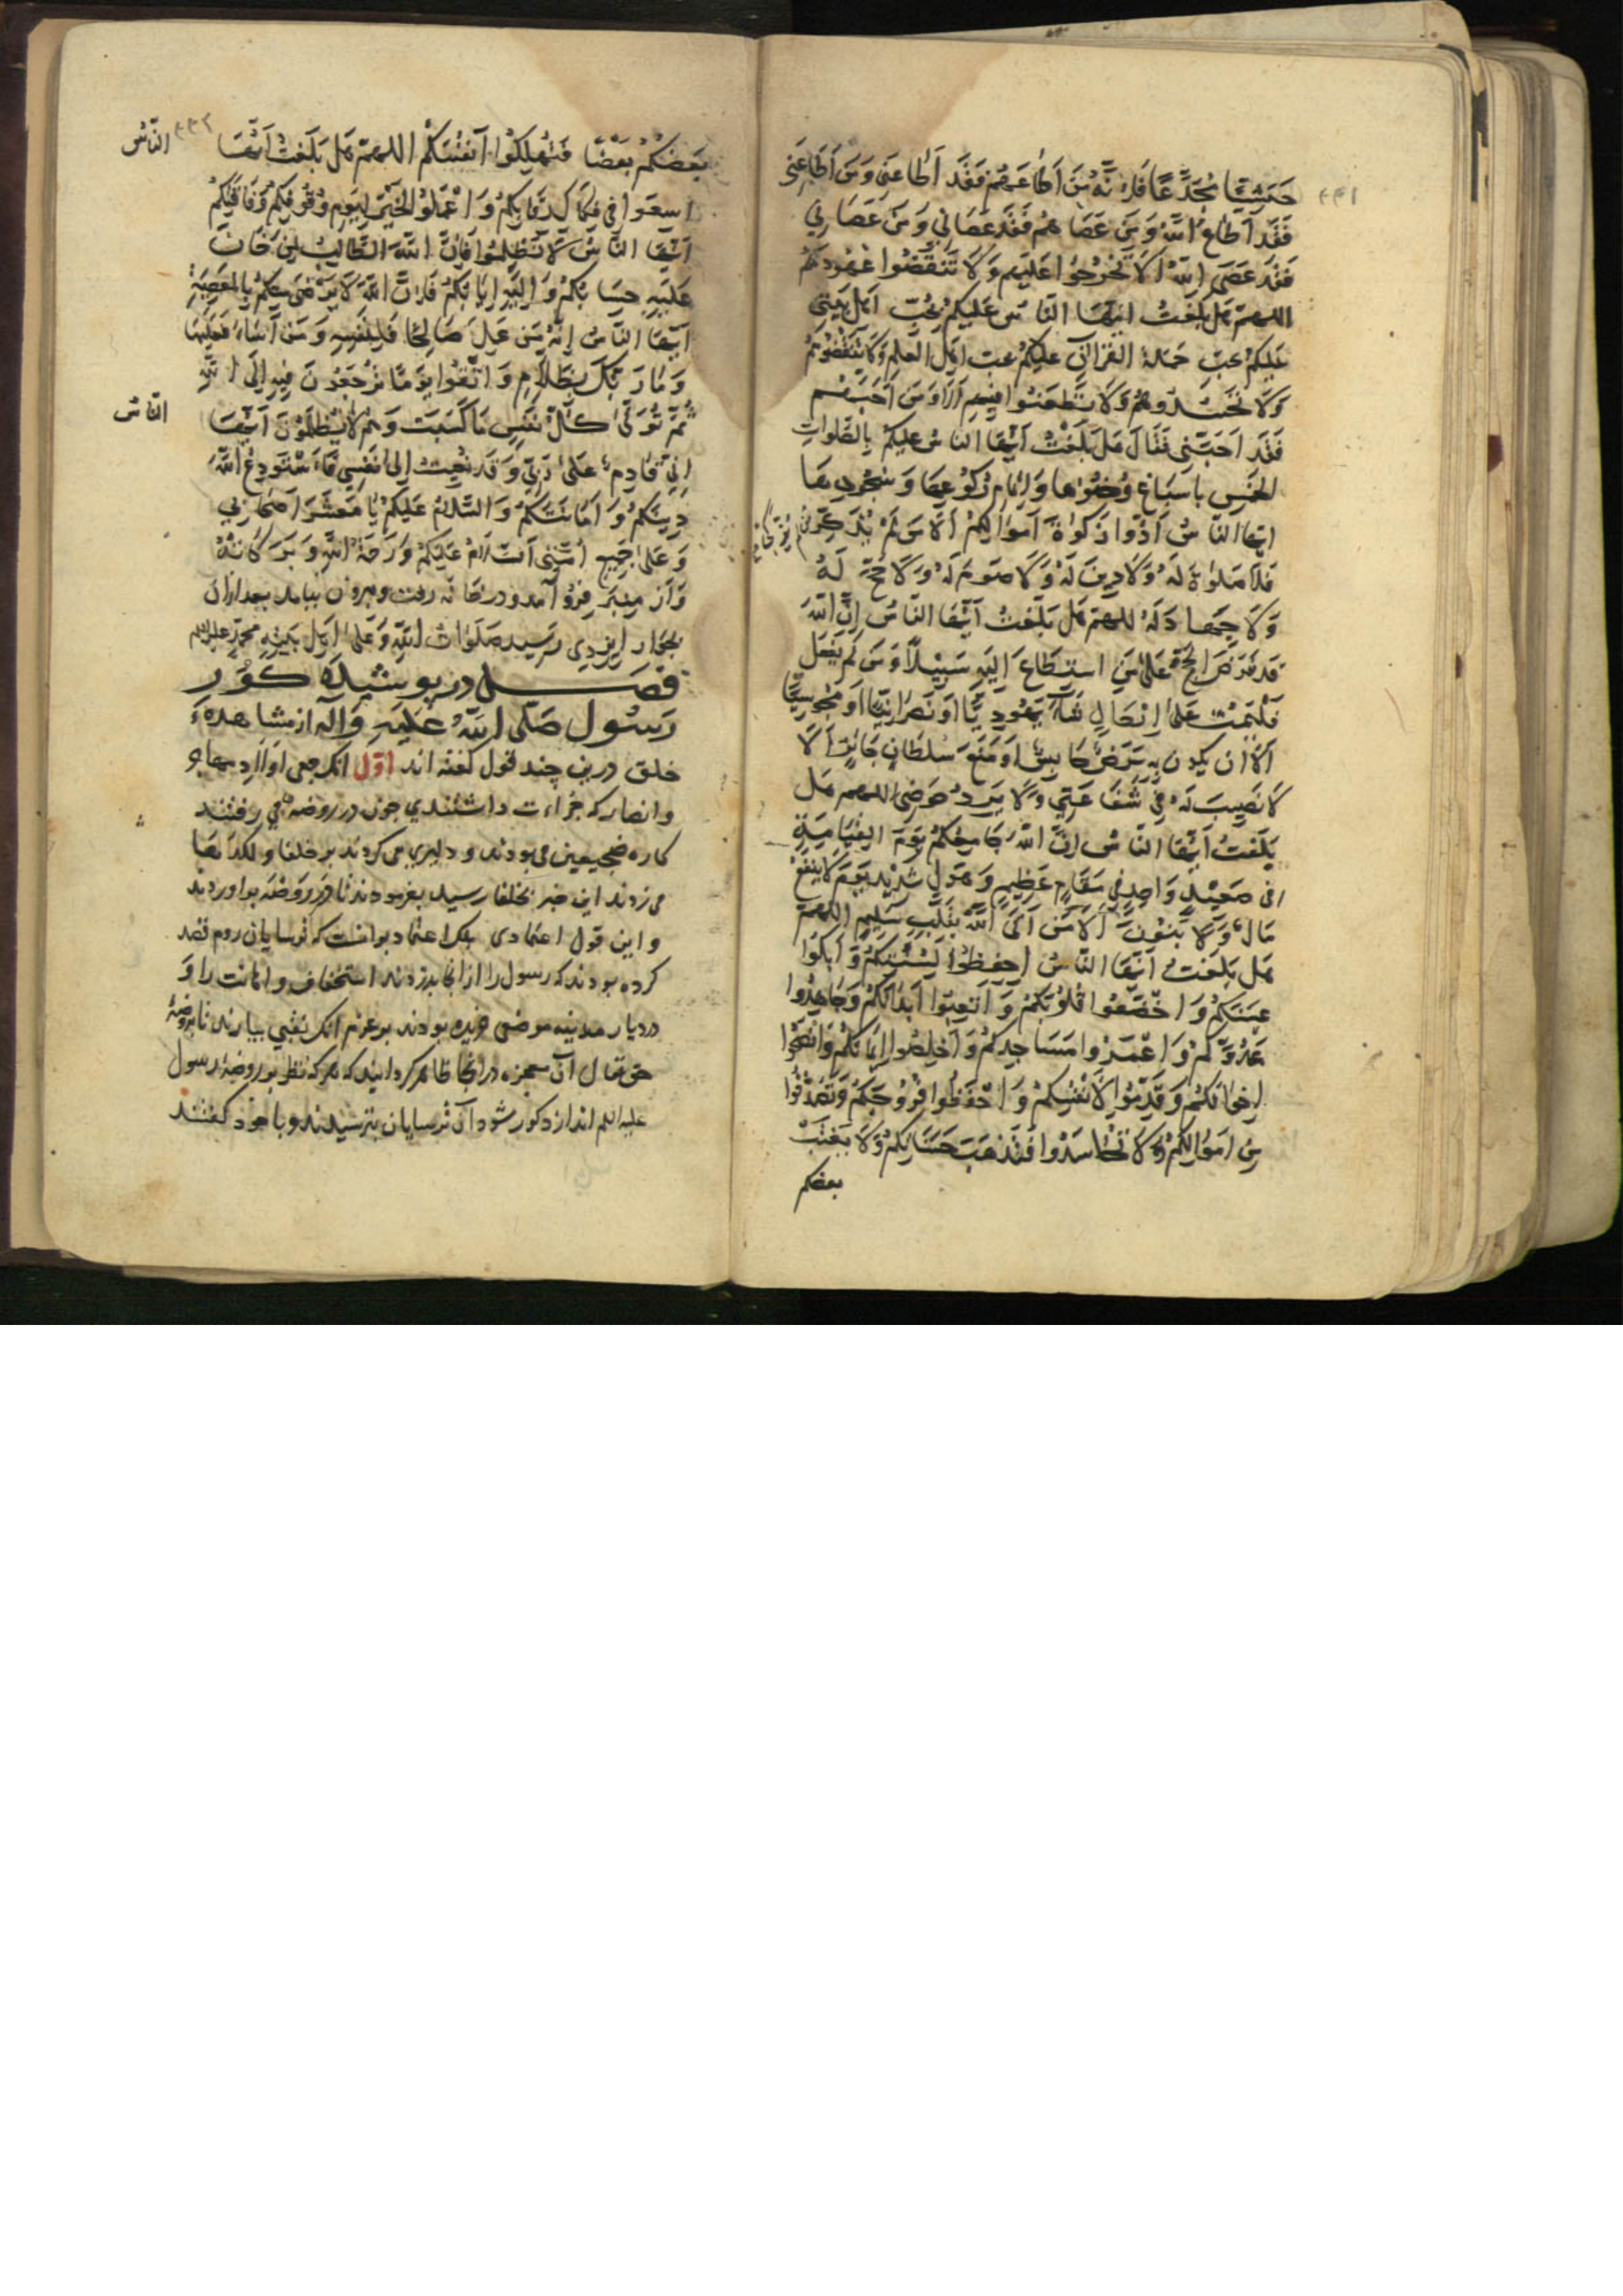 ۴۴۱
حَبَشِيًّا مُجَدَّعًا فَاِنَّهُ مَنْ اَطَاعَهُمْ فَقَدْ اَطَاعَنِي وَمَنْ اَطَاعَنِي
فَقَدْ اَطَاعَ اللّٰهَ وَمَنْ عَصَاهُمْ فَقَدْ عَصَانِي وَمَنْ عَصَانِي
فَقَدْ عَصَى اللّٰهَ اَلَا لَا تَخْرُجُوا عَلَيْهِمْ وَلَا تَنْقُضُوا عُهُودَهُمْ
اللهم هَل بَلَّغتُ ايّها النَّاسُ عَلَيكُمْ بحُبِّ اَهلِ بَيتي
عَلَيكُمْ بحبِّ حَمَلة القرْآن عليكُمْ بحبّ اهل العلم وَلَا تُبْغِضُوهُمْ
وَلَا تَحْسُدُوهُمْ وَلَا تَطْعَنُوا فِيهِم اَلَا وَمَنْ اَحَبَّهُم
فَقَد اَحَبَّني فَقَالَ هَل بَلَّغْتُ اَيُّهَا النَّاسُ عليكُمْ بِالصَّلَواتِ
الخَمْسِ بِاسْبَاغِ وُضُوئِها وَاِتمَامِ رُكُوعِهَا وَسُجُودِهَا
ايّها النَّاسُ اَدُّوا زَكوٰةَ اَموالِكُمْ اَلَا مَنْ لَمْ يُزَكِّ
فَلَا صَلوٰةَ لَهُ وَلَا دِينَ لَهُ وَلَا صَومَ لَهُ وَلَا حَجَّ لَهُ
وَلَا جِهَادَ لَهُ اللهم هَل بَلَّغتُ اَيُّهَا النَّاسُ اِنَّ اللّٰهَ
قَد فَرَضَ الحَجَّ عَلىٰ مَنِ استَطَاعَ اِلَيهِ سَبِيلًا وَمَن لَم يَفعَل
فَليَمُت عَلىٰ اي حَالٍ شَاءَ يَهُودِيًّا اَو نَصرَانِيًّا اَو مَجُوسِيًّا
اَلَا اَن يَكُونَ بِهِ مَرَضٌ حَابِسٌ اَو مَنَعَ سُلطَانٌ جَائرٌ اَلَا
لَا نَصِيبَ لَهُ فِي شَفَاعَتِي وَلَا يَرِدُ حَوضِي اللهم هَل
بَلَّغتُ اَيُّهَا النَّاسُ اِنَّ اللّٰهَ جَامِعُكُمْ يَومَ القِيَامَةِ
فى صَعِيدٍ وَاحِدٍ فِي مَقَامٍ عَظِيمٍ وَهَولٍ شَدِيدٍ يَومَ لَا يَنفَعُ
مَالٌ وَلَا بَنُونَ اِلَّا مَن اَتَى اللّٰهَ بِقَلبٍ سَلِيمٍ اللهم
هَل بَلَّغتُ اَيُّهَا النَّاسُ احفظُوا اَلسِنَتَكُمْ وَاَبكُوا
عينكُمْ وَاخضَعُوا قُلُوبَكُمْ وَاَتعِبُوا اَبدَانَكُمْ وَجَاهِدُوا
عَدُوَّكُمْ وَاعمُرُوا مَسَاجِدَكُمْ وَاَخلِصُوا اِيمَانَكُمْ وَانصَحُوا
اِخوانَكُمْ وَقَدِّمُوا لِاَنْفُسِكُمْ وَاحفَظُوا فُرُوجَكُمْ وَتَصَدَّقُوا
مِن اَموالِكُمْ وَلَا تَحَاسَدُوا فَتَذهَبَ حَسَنَاتُكُمْ وَلَا يَغتَب
بعضكم
۴۴۲
بَعضُكُمْ بَعْضًا فَتَهلِكُوا اَنفُسَكُمْ اللهم هَل بَلَّغتُ اَيُّهَا
النَّاسُ
اسعَوا فِي فِكَاكِ رِقَابِكُمْ وَاعْمَلُوا الخَيْرَ لِيَومِ وُقُوفِكُمْ وَفَاقَتِكُمْ
اَيُّهَا النَّاسُ لَا تَظلِمُوا فَاِنَّ اللّٰهَ الطَّالِبُ لِمَن خَانَ
عَلَيهِ حِسَابُكُمْ وَاِلَيهِ اِيَابُكُمْ فَاِنَّ اللّٰهَ لَا يَرضىٰ مِنكُمْ بِالمَعصِيَةِ
اَيُّهَا النَّاسُ اِنَّهُ مَن عَمِلَ صَالِحًا فَلِنَفسِهِ وَمَن اَسَاءَ فَعَلَيهَا
وَمَا رَبُّكَ بِظَلَّامٍ وَاتَّقُوا يَومًا تُرجَعُونَ فِيهِ اِلَى اللّٰهِ
ثُمَّ تُوَفّٰى كُلُّ نَفسٍ مَا كَسَبَت وَهُم لَا يُظلَمُونَ اَيُّهَا
النَّاسُ
اِنِّي قَادِمٌ عَلىٰ رَبِّي وَقَد نُعِيَت اِلَى نَفسِي فَاَستَودِعُ اللّٰهَ
دِينَكُمْ وَاَمَانَتَكُمْ وَالسَّلَامُ عَلَيكُمْ يَا مَعشَرَ اَصحَابِي
وَعَلىٰ جَمِيعِ اُمَّتِي السَّلَامُ عَلَيكُمْ وَرَحمَةُ اللّٰهِ وَبَرَكَاتُهُ
وَاز منبر فرو آمد ودر خانه رفت وبيرون نيامد بعد ازان
بجوار ايزدى رسيد صَلَوَاتُ اللّٰهِ وَعَلىٰ اهل بَيتِهِ محمد عليه السلم
فصل در پوشيدن گور
رَسُول صَلَّى اللّٰهُ عَلَيهِ وَآلِه از مشاهدهٔ
خلق درين چند قول گفته اند اوّل انك جمعى اولاد مهاجر
وانصار كه جراءت داشتندي چون در روضه مى رفتند
كاره ضجيعين مى بودند و دليرى مى كردند بر خلفا و لكدها
مى زدند اين خبر بخلفا رسيد بفرمودند تا در روضه بر آوردند
و اين قول اعتمادى بلكه اعتماد بر آنست كه ترسايان روم قصد
كرده بودند كه رسول را از انجا بدزدند استخفاف و اهانت را وَ
در ديار مدينه موضعى خريده بودند بر عزم انك نقبى بيارند تا بروضهٔ
حق تعالى آن معجزه در انجا ظاهر گردانيد كه هر كه نظر بر روضهٔ رسول
عليه السلم اندازد كور شود آن ترسايان بترسيدند و با خود گفتند